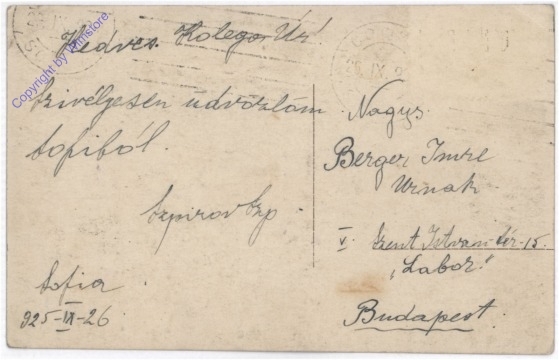 Kedves Kolega Úr!
Szivélyesen üdvözlöm
Sofiából.
Sofia
925-IX-26
Nagys.
Berger Imre
Urnak
V. Szent István tér 15.
"Labor"
Budapest.
Copyright by